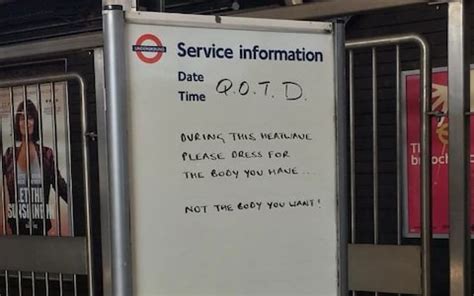 UNDERGROUND
Service information
Date
Time
Q.O.T.D.
DURING THIS HEATWAVE
PLEASE DRESS FOR
THE BODY YOU HAVE...
NOT THE BODY YOU WANT!
LET THE
SUNSHINE IN